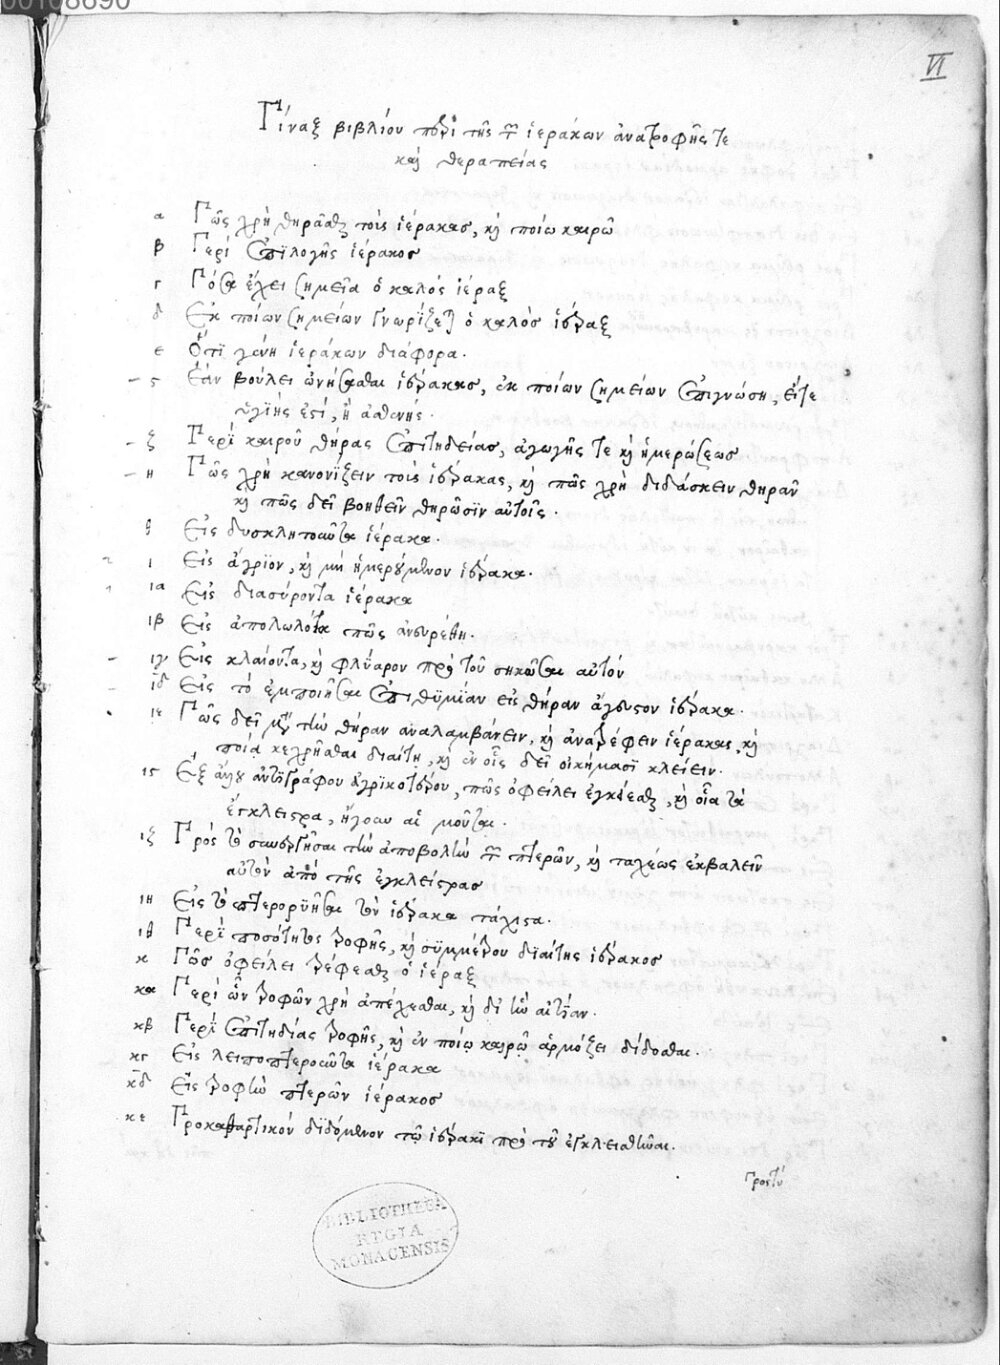 00108690
VI
Πίναξ βιβλίου περὶ τῆς τῶν ἱεράκων ἀνατροφῆς τε
καὶ θεραπείας
α Πῶς χρὴ θηρᾶσθαι τοὺς ἱέρακας, καὶ ποίω καιρῶ
β Περὶ ἐπιλογῆς ἱέρακος
γ Πόσα ἔχει σημεῖα ὁ καλὸς ἱέραξ
δ Ἐκ ποίων σημείων γνωρίζεται ὁ καλὸς ἱέραξ
ε Ὅτι γένη ἱεράκων διάφορα.
ς Ἐὰν βούλει ὠνήσασθαι ἱέρακας, ἐκ ποίων σημείων ἐπιγνώση, εἴτε
ὑγιής ἐστί, ἢ ἀσθενής.
ζ Περὶ καιροῦ θήρας ἐπιτηδείας, ἀγωγῆς τε καὶ ἡμερώσεως
η Πῶς χρὴ κανονίζειν τοὺς ἱέρακας, καὶ πῶς χρὴ διδάσκειν θηρᾶν
καὶ πῶς δεῖ βοηθεῖν θηρῶσιν αὐτοῖς.
θ Εἰς δυσκλητοῦντα ἱέρακα.
ι Εἰς ἄγριον, καὶ μὴ ἡμερούμενον ἱέρακα.
ια Εἰς διασύροντα ἱέρακα
ιβ Εἰς ἀπολωλότα πῶς ἀνευρέθη.
ιγ Εἰς κλαίοντα, καὶ φλύαρον πρὸ τοῦ σηκῶσαι αὐτόν
ιδ Εἰς τὸ ἐμποιῆσαι ἐπιθυμίαν εἰς θήραν ἄγευστον ἱέρακα.
ιε Πῶς δεῖ μετὰ τὴν θήραν ἀναλαμβάνειν, καὶ ἀνατρέφειν ἱέρακας, καὶ
ποία κεχρῆσθαι διαίτη, καὶ ἐν οἷς δεῖ οἰκήμασι κλείειν.
ις Ἐξ ἄλλου ἀντιγράφου ἀγρικοτέρου, πῶς ὀφείλει ἐγκλείεσθαι, καὶ οἷα τὰ
ἔγκλειστρα, ἤγουν αἱ μοῦται.
ιζ Πρὸς τὸ συνεργῆσαι τὴν ἀποβολὴν τῶν πτερῶν, καὶ ταχέως ἐκβαλεῖν
αὐτὸν ἀπὸ τῆς ἐγκλείστρας
ιη Εἰς τὸ πτερορυῆσαι τὸν ἱέρακα τάχιστα.
ιθ Περὶ ποσότητος τροφῆς, καὶ συμμέτρου διαίτης ἱέρακος
κ Πῶς ὀφείλει τρέφεσθαι ὁ ἱέραξ
κα Περὶ ὧν τροφῶν χρὴ ἀπέχεσθαι, καὶ δι' ἣν αἰτίαν.
κβ Περὶ ἐπιτηδίας τροφῆς, καὶ ἐν ποίω καιρῶ ἁρμόζει δίδοσθαι.
κγ Εἰς λειποπτεροῦντα ἱέρακα
κδ Εἰς τροφὴν πτερῶν ἱέρακος
κε Προκαθαρτικόν διδόμενον τῶ ἱέρακι πρὸ τοῦ ἐγκλεισθῆναι.
Πρὸς τὸ
BIBLIOTHECA
REGIA
MONACENSIS